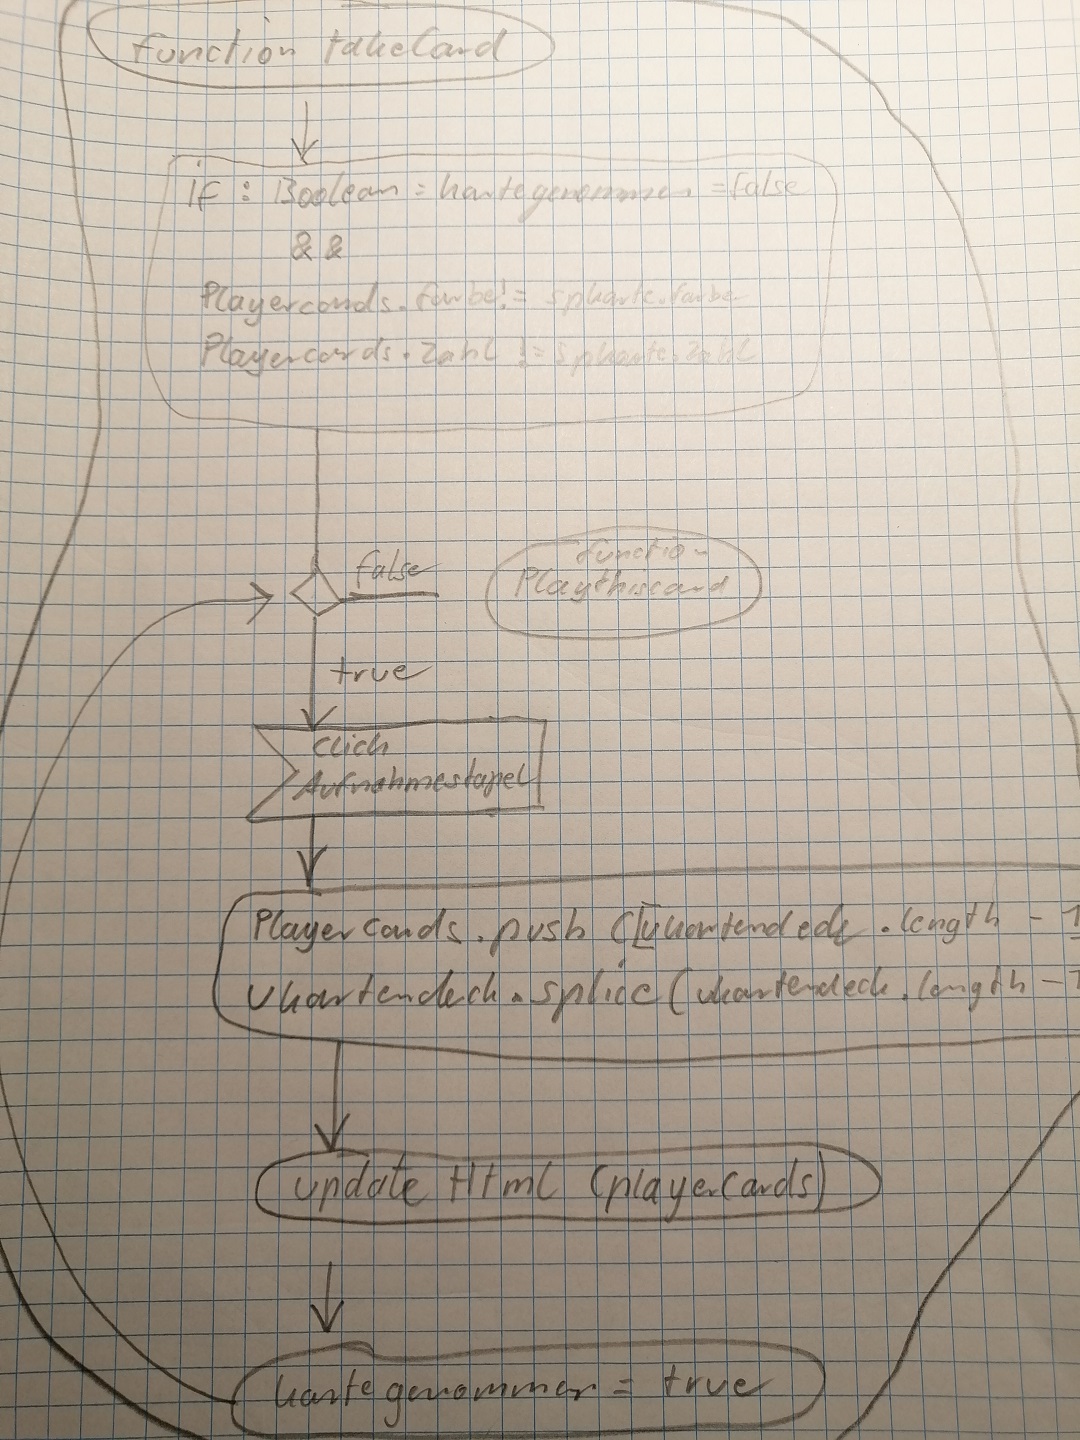 function takeCard
if : Boolean = kartegenommen = false
& &
Playercards.farbe != spkarte.farbe
Playercards.Zahl != spkarte.Zahl
false
function
Playthiscard
true
Click
Aufnahmestapel
Playercards.push ([ukartendeck.length - 1
ukartendeck.splice(ukartendeck.length - 1
update Html (playerCards)
kartegenommen = true